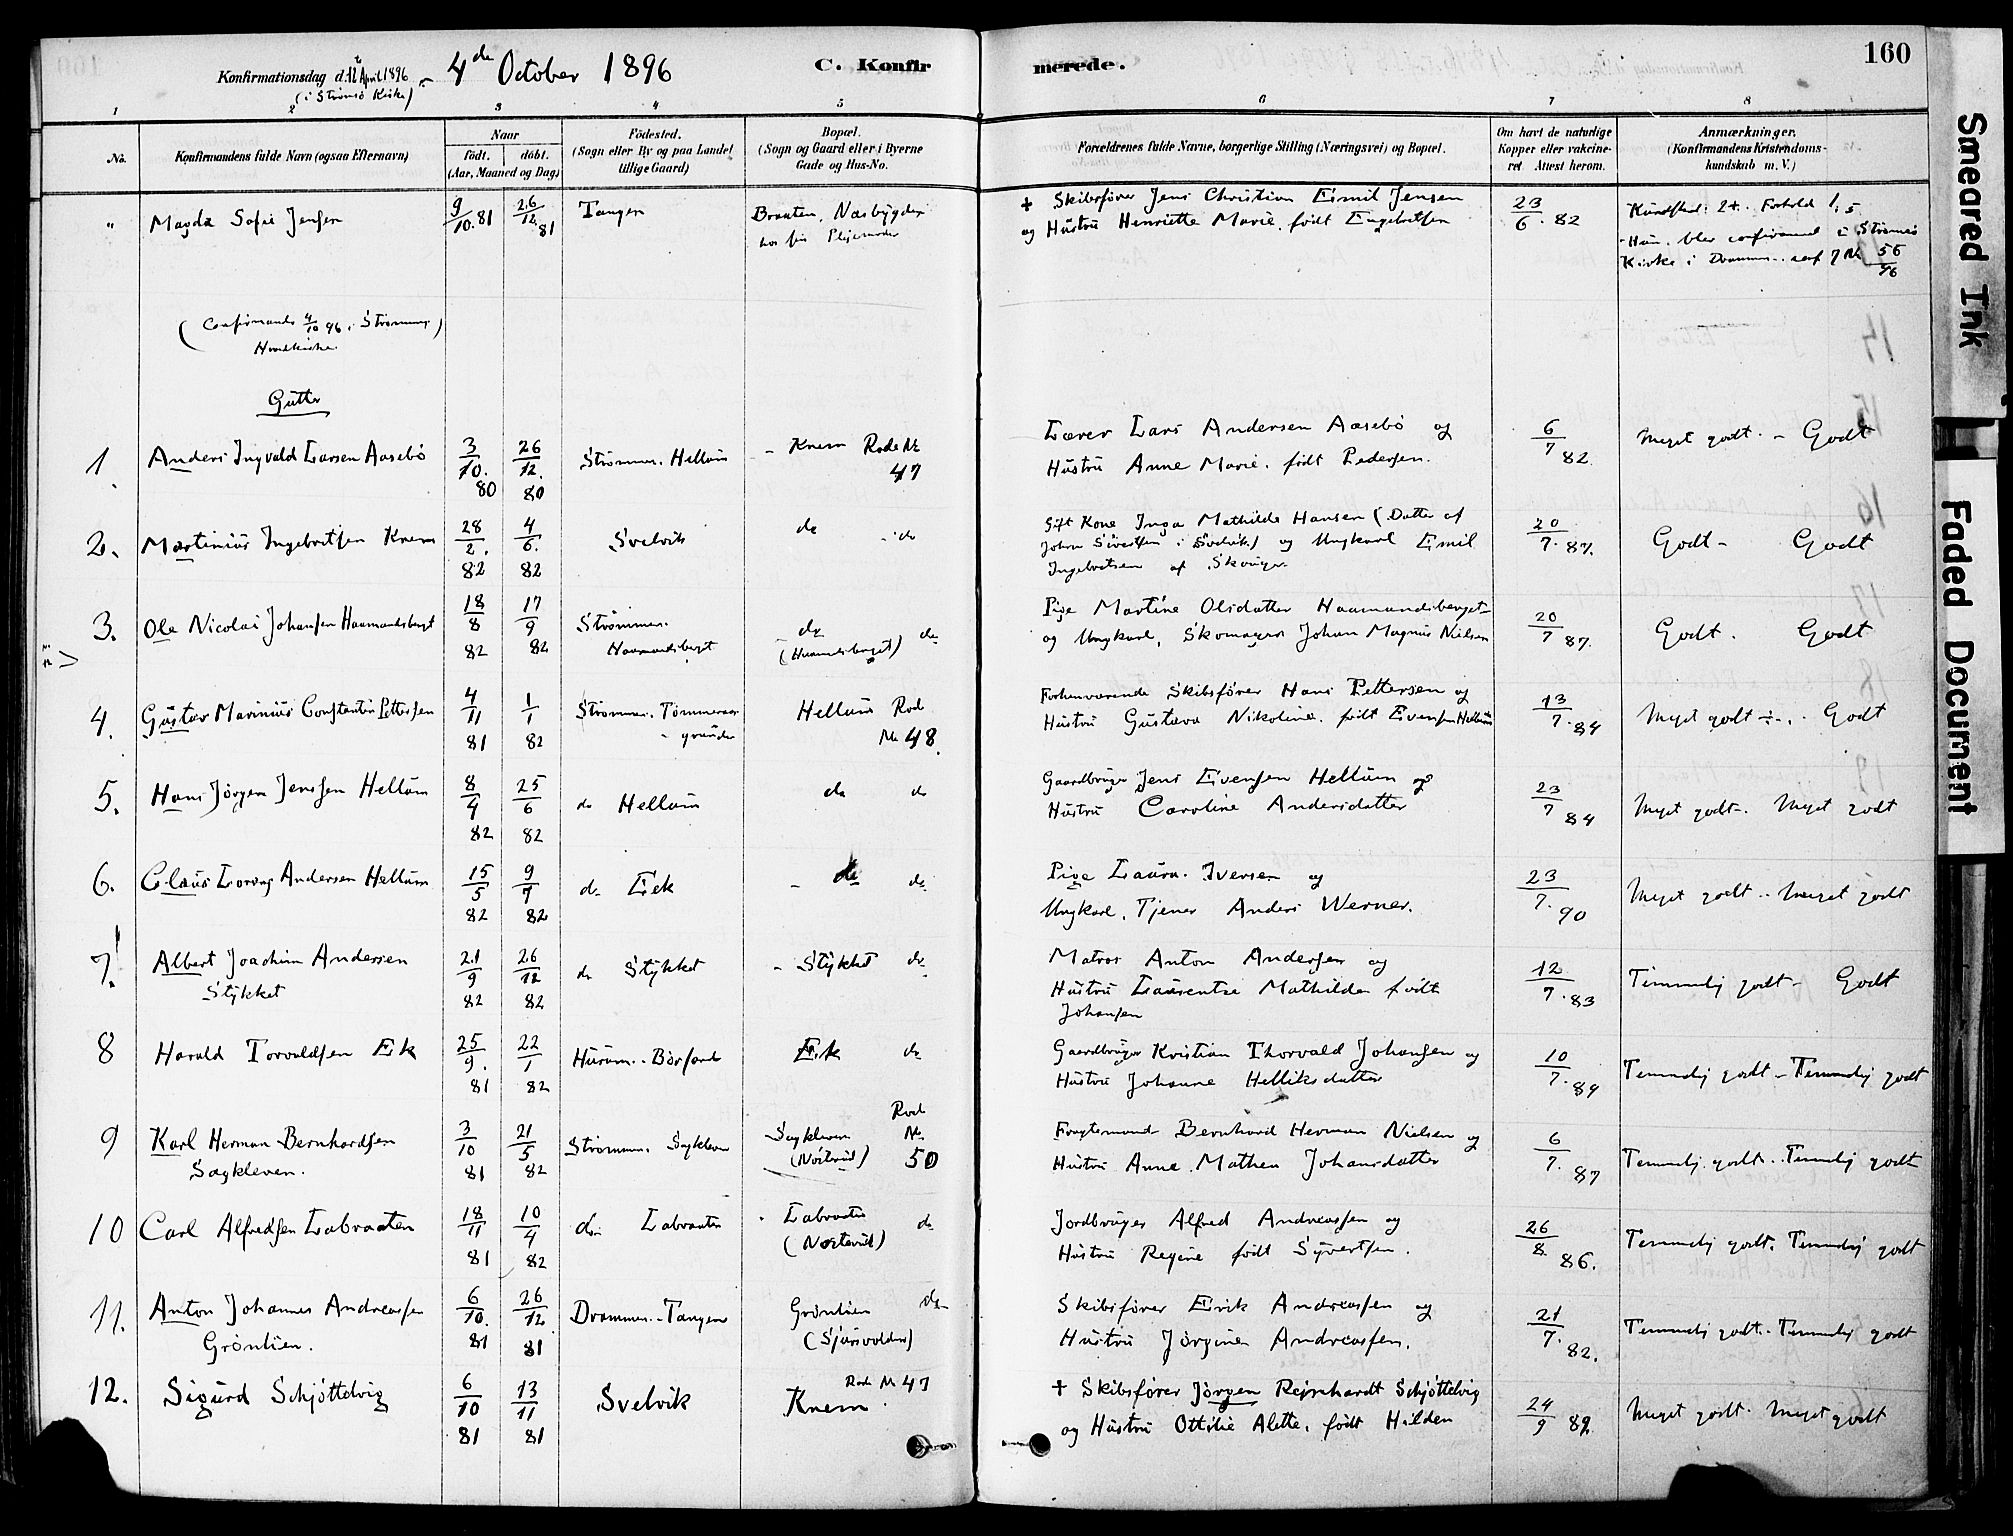 Konfirmationsdag d. 12 April 1896 - 4de October 1896
(i Strømsø Kirke)
C. Konfirmerede.
160
1 2 3 4 5 6 7 8
No.
Konfirmandens fulde Navn (ogsaa Efternavn)
Naar
født. døbt.
(Aar, Maaned og Dag)
Fødested.
(Sogn eller By og paa Landet
tillige Gaard)
Bopæl.
(Sogn og Gaard eller i Byerne
Gade og Hus-No.
Forældrenes fulde Navne, borgerlige Stilling (Næringsvei) og Bopæl.
Om havt de naturlige
Kopper eller vakcine-
ret Attest herom.
Anmærkninger.
(Konfirmandens Kristendoms-
kundskab m. V.)
" Magda Sofie Jensen 9/10. 81 26/12. 81 Tangen Braaten, Næsbygden
hos sin Plejemoder
+ Skibsfører Jens Christian Emil Jensen
og Hustru Henriette Marie, født Engebretsen
23/6. 82
Kundskab: 2+. Forhold 1,5
Hun blev confirmeret i Strømsø
Kirke i Drammen 56/96
(Confirmerede 4/10 96 i Strømmen
Hovedkirke)
Gutter
1. Anders Ingvald Larsen Aasebö 3/10. 80 26/12. 80 Strömmen. Hellum - Knem Rode No 47
Lærer Lars Andersen Aasebö og
Hustru Anne Marie, født Pedersen.
6/7 82. Meget godt. - Godt
2. Martinius Ingebritsen Knem 28/2. 82 4/6. 82 Svelvik do - do
Gift Kone Inga Mathilde Hansen (Datter af
Johan Sivertsen i Svelvik) og Ungkarl Emil
Ingebretsen af Skouger.
20/7. 87. Godt - Godt
3. Ole Nicolai Johansen Haamandsberget 18/8 82 17/9 82 Strömmen.
Haamandsberget do (Haamandsberget) do
Pige Martine Olsdatter Haamandsberget
og Ungkarl, Skomager Johan Magnus Nielsen
20/7 87. Godt. Godt
4. Gustav Marinius Constantin Pettersen 4/11 81 1/1 82 Strömmen. Tömmeraas-
grunden Hellum Rode No 48.
Forhenværende Skibsfører Hans Pettersen og
Hustru Gustava Nikoline, født Evensen Hellum
13/7. 84 Meget godt ÷. Godt
5. Hans Jörgen Jenssen Hellum 8/4 82 25/6 82 do Hellum do do
Gaardbruger Jens Evensen Hellum og
Hustru Caroline Andersdatter
23/7 84 Meget godt. Meget godt
6. Claus Lorens Andersen Hellum 15/5 82 9/7 82 do Eek - do do
Pige Laura Iversen og
Ungkarl, Tjener Anders Werner.
23/7. 90 Meget godt - meget godt
7. Albert Joachim Andersen
Stykket 21/9 82 26/12 82 do Stykket - Stykket do
Matros Anton Andersen og
Hustru Laurentze Mathilde født
Johansen
12/7. 83 Temmelig godt - Godt
8 Harald Torvaldsen Ek 25/9. 81 22/1 82 Hurum. Ek do
Gaardbruger Kristian Thorvald Johansen og
Hustru Johanne Helliksdatter
10/7. 89 Temmelig godt - Temmelig godt
9 Karl Herman Bernhardsen
Sagkleven. 3/10 81 21/5 82 Strömmen. Sagkleven Sagkleven
(Nortvid) Rode No. 50
Fragtemand Bernhard Herman Nielsen og
Hustru Anne Mathea Johansdatter
6/7. 87 Temmelig godt. Temmelig godt
10 Carl Alfredsen Labraaten 18/11 81 10/4 82 do Labraaten Labraaten
(Nortevid) do
Jordbruger Alfred Andreassen og
Hustru Regine født Syvertsen.
26/8. 86. Temmelig godt. Temmelig godt
11. Anton Johannes Andreassen
Gröntien. 6/10. 81 26/12 81 Drammen. Tangen Gröntien do
(Sjursvolden)
Skibsfører Erik Andreassen og
Hustru Jörgine Andreassen.
21/7. 82. Temmelig godt. Temmelig godt
12. Sigurd Schjöttelvig 6/10 81 13/11 81 Svelvik Rode No 47
Knem
+ Skibsfører Jörgen Rejnhardt Schjöttelvig
og Hustru Ottilie Alette, født Hilden
24/9 82. Meget godt. Meget godt
Smeared Ink
Faded Document